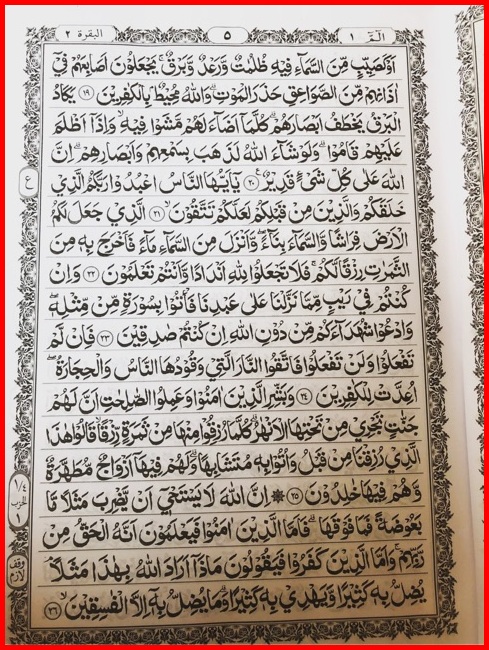 الٓمّٓ ١
٥
البقرة ٢
اَوْ كَصَيِّبٍ مِّنَ السَّمَآءِ فِيْهِ ظُلُمٰتٌ وَّرَعْدٌ وَّبَرْقٌ ۚ يَجْعَلُوْنَ اَصَابِعَهُمْ فِيْٓ
اٰذَانِهِمْ مِّنَ الصَّوَاعِقِ حَذَرَ الْمَوْتِ ؕ وَاللّٰهُ مُحِيْطٌۢ بِالْكٰفِرِيْنَ ﴿١٩﴾ يَكَادُ
الْبَرْقُ يَخْطَفُ اَبْصَارَهُمْ ؕ كُلَّمَآ اَضَآءَ لَهُمْ مَّشَوْا فِيْهِ ۙ وَاِذَآ اَظْلَمَ
عَلَيْهِمْ قَامُوْا ؕ وَلَوْ شَآءَ اللّٰهُ لَذَهَبَ بِسَمْعِهِمْ وَاَبْصَارِهِمْ ؕ اِنَّ
اللّٰهَ عَلٰى كُلِّ شَيْءٍ قَدِيْرٌ ﴿٢٠﴾ يٰٓاَيُّهَا النَّاسُ اعْبُدُوْا رَبَّكُمُ الَّذِيْ
خَلَقَكُمْ وَالَّذِيْنَ مِنْ قَبْلِكُمْ لَعَلَّكُمْ تَتَّقُوْنَ ۙ ﴿٢١﴾ الَّذِيْ جَعَلَ لَكُمُ
الْاَرْضَ فِرَاشًا وَّالسَّمَآءَ بِنَآءً ۪ وَّاَنْزَلَ مِنَ السَّمَآءِ مَآءً فَاَخْرَجَ بِهٖ مِنَ
الثَّمَرٰتِ رِزْقًا لَّكُمْ ۚ فَلَا تَجْعَلُوْا لِلّٰهِ اَنْدَادًا وَّاَنْتُمْ تَعْلَمُوْنَ ﴿٢٢﴾ وَاِنْ
كُنْتُمْ فِيْ رَيْبٍ مِّمَّا نَزَّلْنَا عَلٰى عَبْدِنَا فَاْتُوْا بِسُوْرَةٍ مِّنْ مِّثْلِهٖ ۪
وَادْعُوْا شُهَدَآءَكُمْ مِّنْ دُوْنِ اللّٰهِ اِنْ كُنْتُمْ صٰدِقِيْنَ ﴿٢٣﴾ فَاِنْ لَّمْ
تَفْعَلُوْا وَلَنْ تَفْعَلُوْا فَاتَّقُوا النَّارَ الَّتِيْ وَقُوْدُهَا النَّاسُ وَالْحِجَارَةُ ۖ
اُعِدَّتْ لِلْكٰفِرِيْنَ ﴿٢٤﴾ وَبَشِّرِ الَّذِيْنَ اٰمَنُوْا وَعَمِلُوا الصّٰلِحٰتِ اَنَّ لَهُمْ
جَنّٰتٍ تَجْرِيْ مِنْ تَحْتِهَا الْاَنْهٰرُ ؕ كُلَّمَا رُزِقُوْا مِنْهَا مِنْ ثَمَرَةٍ رِّزْقًا قَالُوْا هٰذَا
الَّذِيْ رُزِقْنَا مِنْ قَبْلُ ۙ وَاُتُوْا بِهٖ مُتَشَابِهًا ؕ وَلَهُمْ فِيْهَآ اَزْوَاجٌ مُّطَهَّرَةٌ
وَّهُمْ فِيْهَا خٰلِدُوْنَ ﴿٢٥﴾ اِنَّ اللّٰهَ لَا يَسْتَحْيٖٓ اَنْ يَّضْرِبَ مَثَلًا مَّا
بَعُوْضَةً فَمَا فَوْقَهَا ؕ فَاَمَّا الَّذِيْنَ اٰمَنُوْا فَيَعْلَمُوْنَ اَنَّهُ الْحَقُّ مِنْ
رَّبِّهِمْ ۚ وَاَمَّا الَّذِيْنَ كَفَرُوْا فَيَقُوْلُوْنَ مَاذَآ اَرَادَ اللّٰهُ بِهٰذَا مَثَلًا ۘ
يُضِلُّ بِهٖ كَثِيْرًا ۙ وَّيَهْدِيْ بِهٖ كَثِيْرًا ؕ وَمَا يُضِلُّ بِهٖٓ اِلَّا الْفٰسِقِيْنَ ۙ ﴿٢٦﴾
ع
وقف لازم